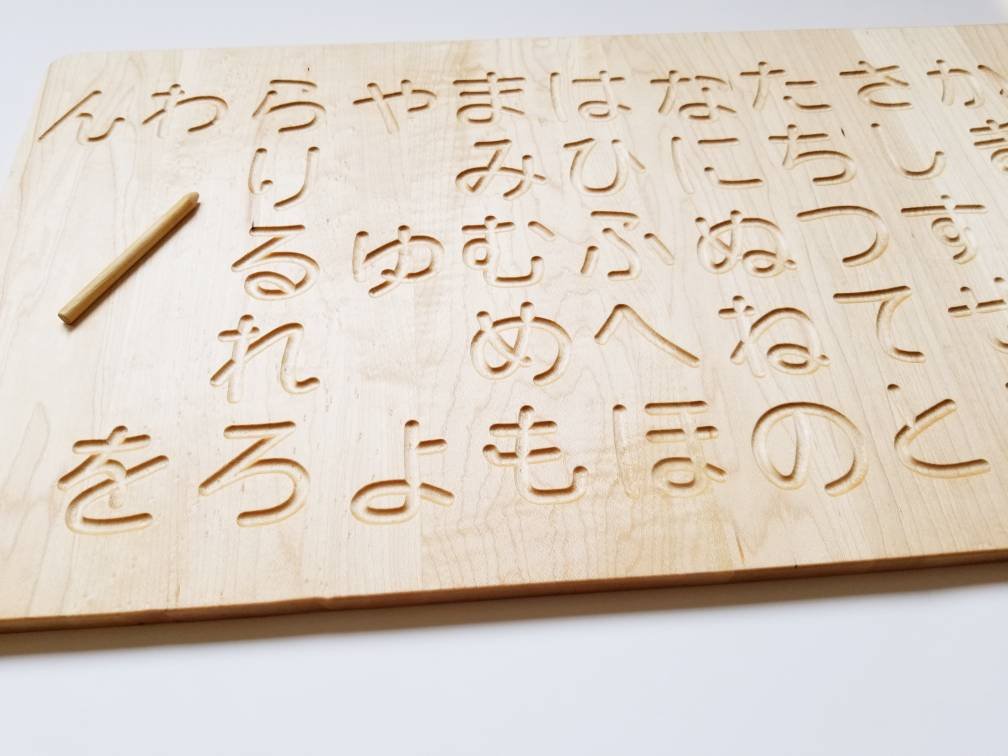 かき
さしすせ
たちつてと
なにぬねの
はひふへほ
まみむめも
やゆよ
らりるれろ
わを
ん